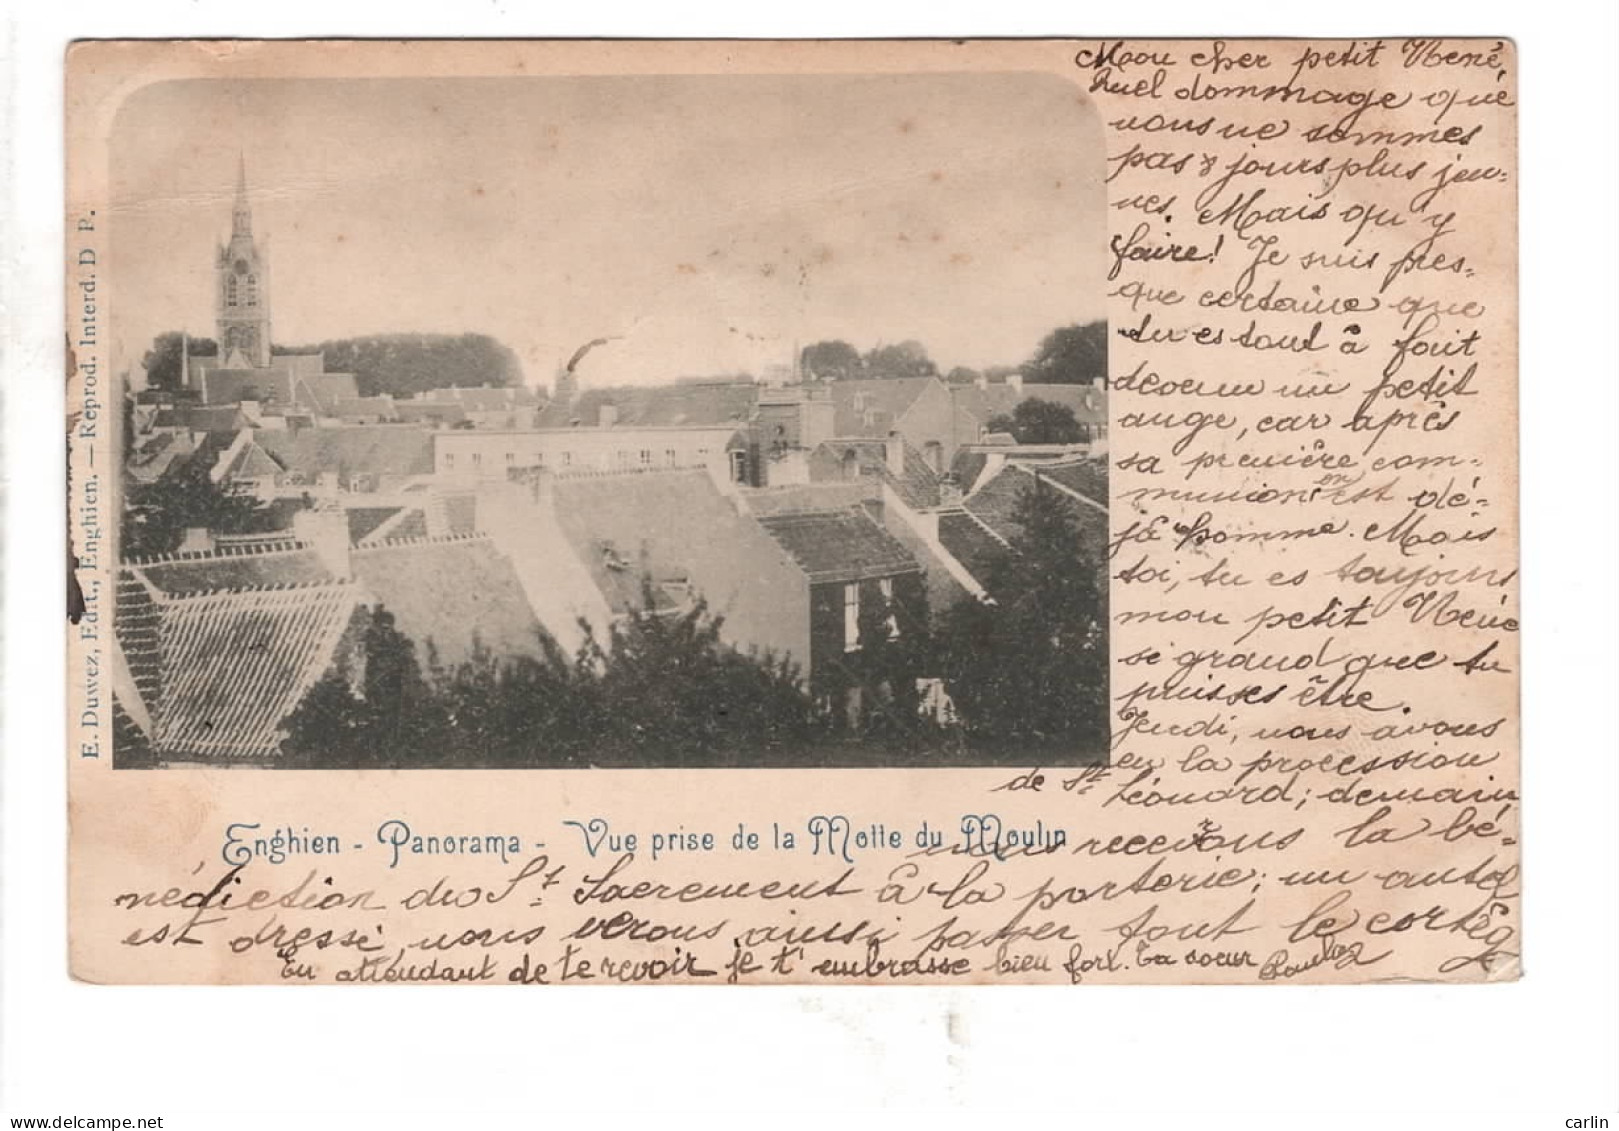 Mon cher petit René,
Quel dommage que
nous ne sommes
pas 8 jours plus jeu-
nes. Mais qu'y
faire! Je suis pres-
que certaine que
tu es tout à fait
devenu un petit
ange, car après
sa première com-
munion on est dé-
jà homme. Mais
toi, tu es toujours
mon petit René
si grand que tu
puisses être.
Jeudi, nous avons
eu la procession
de St. Léonard; demain
nous recevrons la bé-
nédiction du St. Sacrement à la porterie; un autel
est dressé, nous verons ainsi passer tout le cortège
En attendant de te revoir je t'embrasse bien fort. Ta soeur
E. Duwez, Edit., Enghien. — Reprod. Interd. D P.
Enghien - Panorama - Vue prise de la Motte du Moulin
www.delcampe.net
carlin